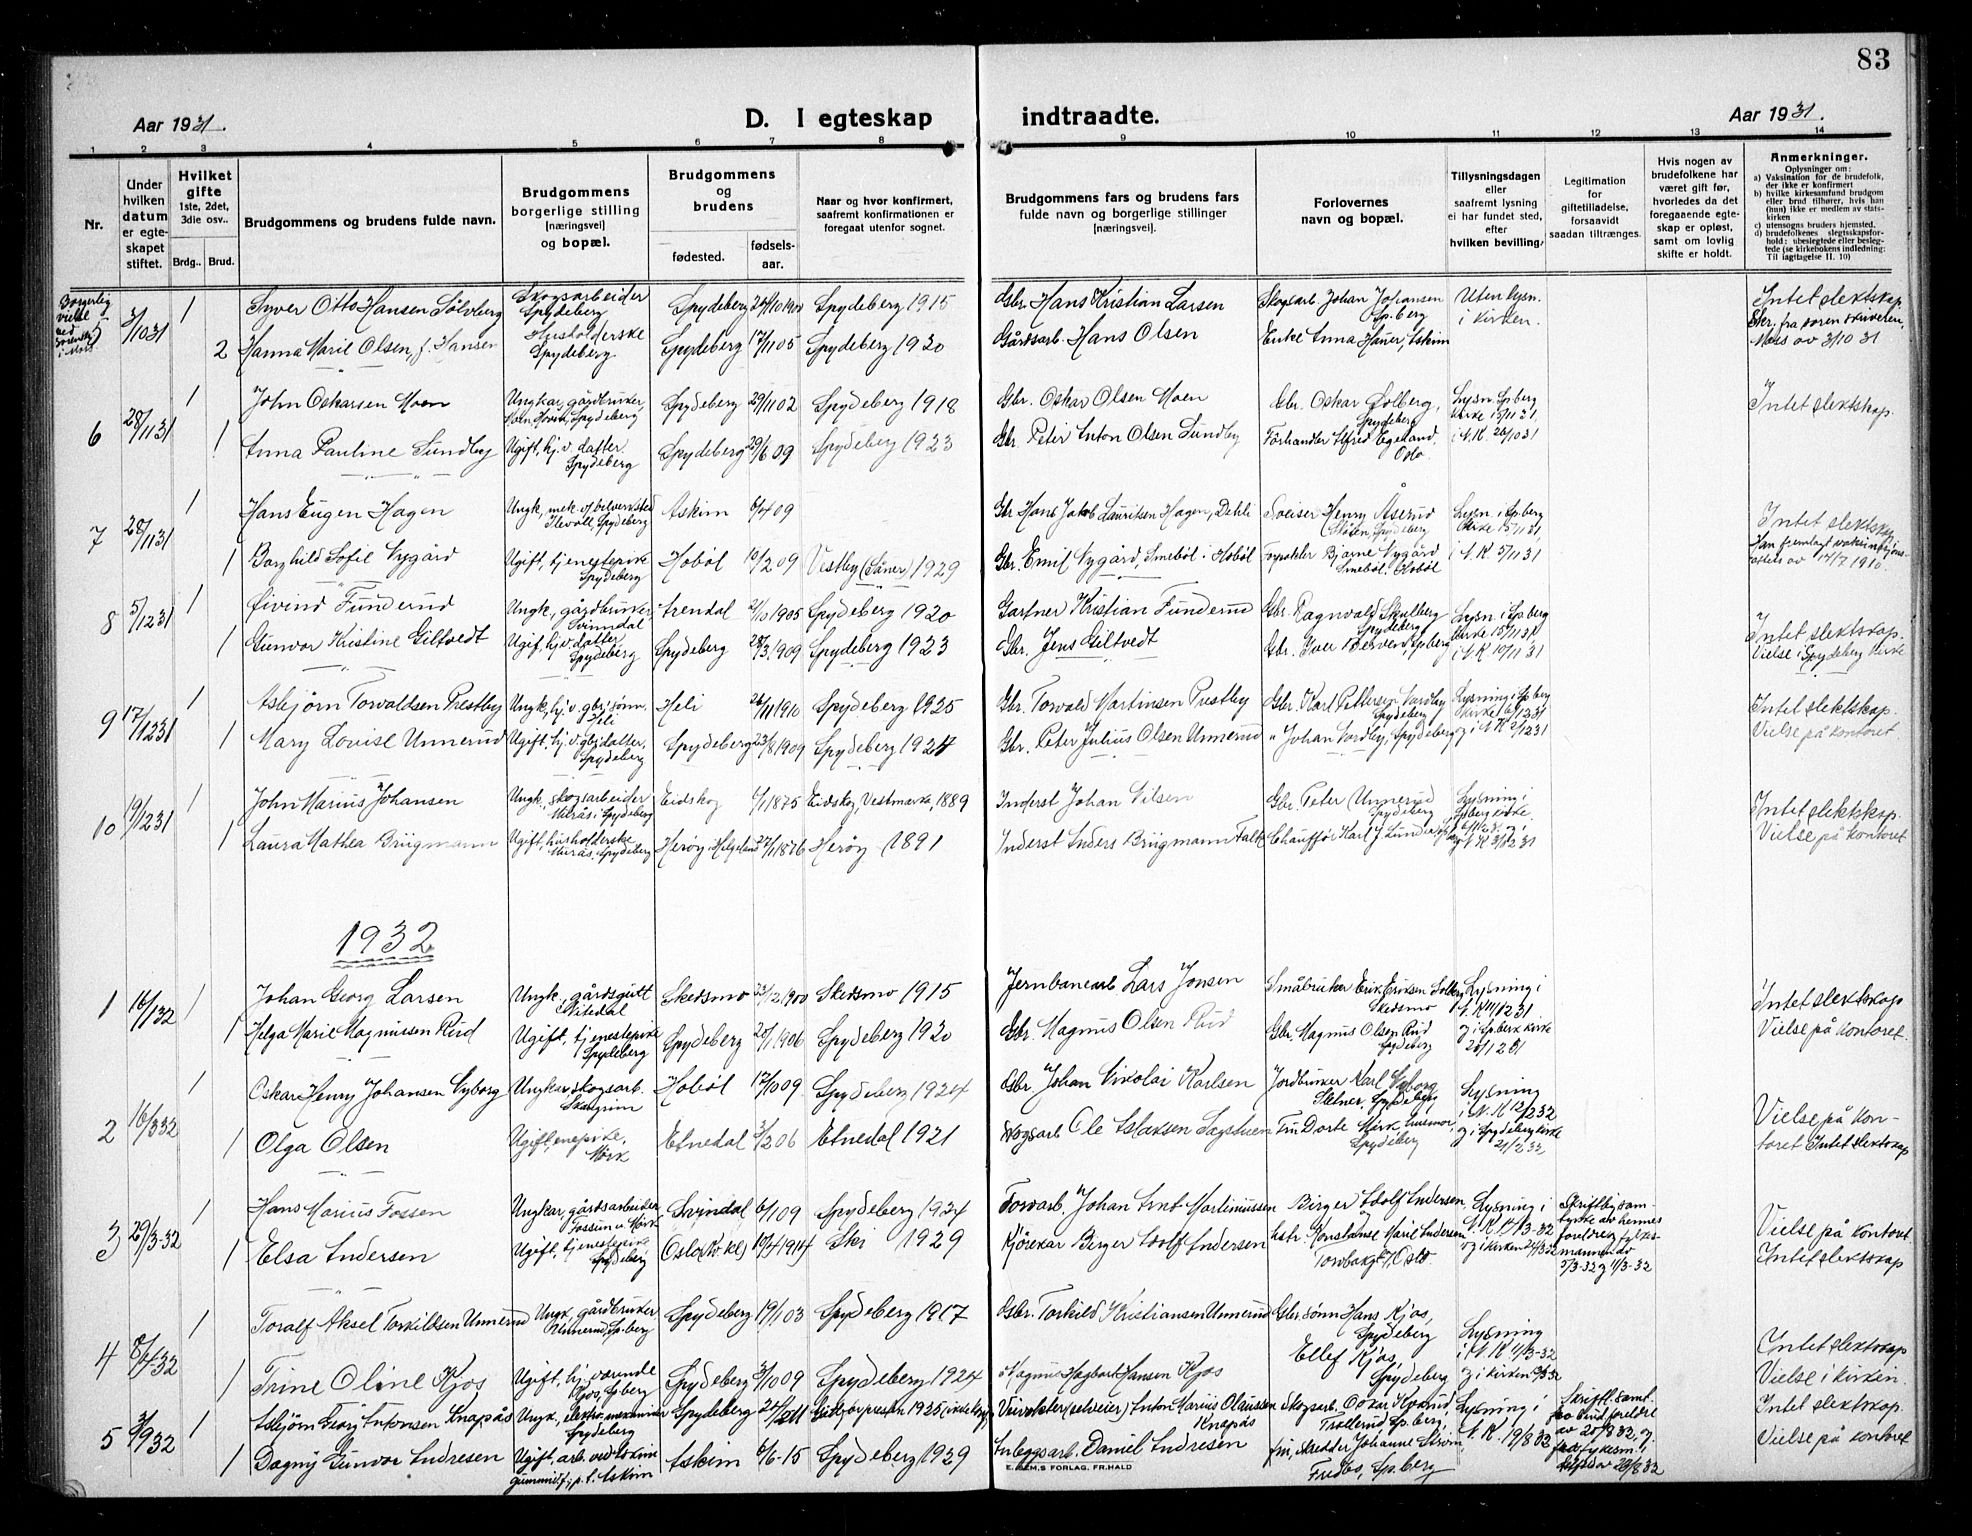 83
Aar 1931.
D. I egteskap
indtraadte.
Aar 1931.
1 2 3 4 5 6 7 8 9 10 11 12 13 14
Nr.
Under
hvilken
datum
er egte-
skapet
stiftet.
Hvilket
gifte
1ste, 2det,
3die osv..
Brdg..
Brud.
Brudgommens og brudens fulde navn.
Brudgommens
borgerlige stilling
(næringsvei)
og bopæl.
Brudgommens
og
brudens
fødested.
fødsels-
aar.
Naar og hvor konfirmert,
saafremt konfirmationen er
foregaat utenfor sognet.
Brudgommens fars og brudens fars
fulde navn og borgerlige stillinger
(næringsvei).
Forlovernes
navn og bopæl.
Tillysningsdagen
eller
saafremt lysning
ei har fundet sted,
efter
hvilken bevilling,
Legitimation
for
giftetilladelse,
forsaavidt
saadan tiltrænges.
Hvis nogen av
brudefolkene har
været gift før,
hvorledes da det
foregaaende egte-
skap er opløst,
samt om lovlig
skifte er holdt.
Anmerkninger.
Oplysninger om:
a) Vaksination for de brudefolk,
der ikke er konfirmert
b) hvilke kirkesamfund brudgom
eller brud tilhører, hvis han
(hun) ikke er medlem av stats-
kirken
c) utensogns bruders hjemsted.
d) brudefolkenes slegtsskapsfor-
hold: ubeslegtede eller besleg-
tede (se kirkebokens indledning:
Til iagttagelse II. 10)
Borgerlig vielse 3/10 31 1 Syver Otto Hansen Sølvberg Skogsarbeider Spydeberg Spydeberg 24/10 1900 Spydeberg 1915 Gbr. Hans Kristian Larsen Skogsarb. Johan Johansen Sp.berg Uten lysn. i kirken. Intet slektskap
2 Hanna Marie Olsen, f. Hansen Husholderske Spydeberg Spydeberg 17/11 05 Spydeberg 1920 Gårdsarb. Hans Olsen Enke Anna Hauer, Askim av 3/10 31
6 28/11 31 1 John Oskarsen Moen Ungkar, gårdbruker Spydeberg Spydeberg 29/11 02 Spydeberg 1918 Gbr. Oskar Olsen Moen Gbr. Oskar Solberg, Spydeberg Lysn. Sp.berg kirke 15/11 31, Intet slektskap.
1 Anna Pauline Sundby Ugift, hj.v. datter Spydeberg Spydeberg 29/6 09 Spydeberg 1923 Gbr. Peter Anton Olsen Sundby Forhandler Alfred Egeland. Oslo i N.K. 26/10 31
7 28/11 31 1 Hans Eugen Hagen Ungk., mek. v/ bilverksted Spydeberg Askim 6/4 09 Gbr Hans Jakob Lauritsen Hagen, Dehli Sveiser Henry Åserud Spydeberg Lysn. i Sp.berg kirke 15/11 31, Intet slektskap
1 Borghild Sofie Nygård Ugift, tjenestepike Spydeberg Hobøl 10/2 09 Vestby (Såner) 1929 Gbr. Emil Nygård, Smebøl i Hobøl Bjarne Nygård Smebøl. Hobøl i N.K 5/11 31 av 14/7 1910.
8 5/12 31 1 Øivind Funderud Ungk., gårdbruker, Svinndal Arendal 2/10 1905 Spydeberg 1920 Gartner Kristian Funderud Gbr. Ragnvald Skulberg Spydeberg Lysn i Sp.berg kirke 15/11 31, Intet slektskap.
1 Gunvor Kristine Giltvedt Ugift, hj.v. datter Spydeberg Spydeberg 28/3 1909 Spydeberg 1923 Gbr. Jens Giltvedt Gbr. Iver Sp.berg i N.K 10/11 31 Vielse i Spydeberg kirke
9 17/12 31 1 Asbjørn Torvaldsen Prestby Ungk., hj.v. gbr.sønn. Heli Heli 26/11 1910 Spydeberg 1925 Gbr. Torvald Martinsen Prestby Gbr. Karl Pettersen Vordby Spydeberg Lysning i Sp.berg kirke 6/12 31 Intet slektskap.
1 Mary Lovise Unnerud Ugift, hj.v. gbr.datter. Spydeberg Spydeberg 23/8 1909 Spydeberg 1924 Gbr. Peter Julius Olsen Unnerud " Johan Vordby, Spydeberg og i N.K 2/12 31 Vielse på kontoret
10 19/12 31 1 John Marius Johansen Ungk., skogsarbeider i Spydeberg Eidskog 1/1 1875 Eidskog, Vestmarka, 1889 Inderst Johan Nilsen Gbr. Peter Unnerud Spydeberg Lysning i Sp.berg kirke Intet slektskap.
1 Laura Mathea Brügmann Ugift, husholderske i Spydeberg Herøy i Helgeland 27/1 1876 Herøy 1891 Inderst Anders Brügmann Falk Chauffør Karl J. Lunde Vielse på kontoret
1932
1 16/1 32 1 Johan Georg Larsen Ungk., gårdsgutt Nitedal Skedsmo 23/12 1900 Skedsmo 1915 Jernbanearb Lars Jonsen Småbruker Erik Eriksen Solberg Skedsmo Lysning i N.K 11/12 31 Intet slektskap
1 Helga Marie Magnussen Rud Ugift, tjenestepike Spydeberg Spydeberg 20/1 1906 Spydeberg 1920 Gbr. Magnus Olsen Rud Gbr. Magnus Olsen Rud Spydeberg og i Sp.berg kirke 20/12 31 Vielse på kontoret.
2 16/3 32 1 Oskar Henry Johansen Nyborg Ungkar, skogsarb. Skansgrinn Hobøl 12/10 09 Spydeberg 1924 Gbr Johan Nikolai Karlsen Jordbruker Karl Nyborg Spydeberg Lysning i N.K 12/2 32 Vielse på kon-
1 Olga Olsen Ugift, tjenepike, Mørk Etnedal 3/2 06 Etnedal 1921 Skogsarb Ole Islaksen Sagstuen Fru Dorte Mørk, Spydeberg og i Spydeberg kirke 21/2 32 toret Intet slektskap
3 29/3-32 1 Hans Marius Fossen Ungkar, gårdsarbeider Svindal 6/1 09 Spydeberg 1924 Johan Arnt Martinussen Birger Adolf Andersen Lysning i N.K 17/3-32 Skriftlig sam- tykke av hennes foreldre Vielse på kontoret.
1 Elsa Andersen Ugift, tjenestepike Spydeberg Oslo 10/4 1914 Ski 1929 Kjørekar Birger Adolf Andersen hstr. Konstanse Marie Andersen Oslo. og i kirken 5/3-32 og 11/3-32 Intet slektskap
4 8/4-32 1 Toralf Aksel Torkildsen Unnerud Ungk., gårdbruker Unnerud, Sp.berg Spydeberg 19/1 03 Spydeberg 1917 Gbr. Torkild Kristiansen Unnerud Gbr.sønn Hans Kjos, Spydeberg Lysning i N.K 11/3-32 Intet slektskap
1 Trine Oline Kjos Ugift, hj.værende Kjos, Sp.berg Spydeberg 3/10 09 Spydeberg 1924 Magnus Hagbart Hansen Kjos Ellef Kjos, Spydeberg og i kirken Vielse i kirken.
5 3/9 32 1 Asbjørn Georg Antonsen Knapås Ungk., elektro-mekaniker Spydeberg Spydeberg 1925 Anton Marius Olaussen Knapås Skogsarb. Oskar Sp.berg, Lysning i Skriftl. samt. av 25/8 32, Intet slektskap.
1 Dagny Gunvor Andresen Ugift, arb. ved Askim gummif., p.t. Askim Askim 6/6-15 Spydeberg 1929 Anleggsarb. Daniel Andresen Johanne Strøm Fredbo, Sp.berg N.K. 19/8 32 26/8 32 Vielse på kontoret
E. SEM,S FORLAG. FR.HALD